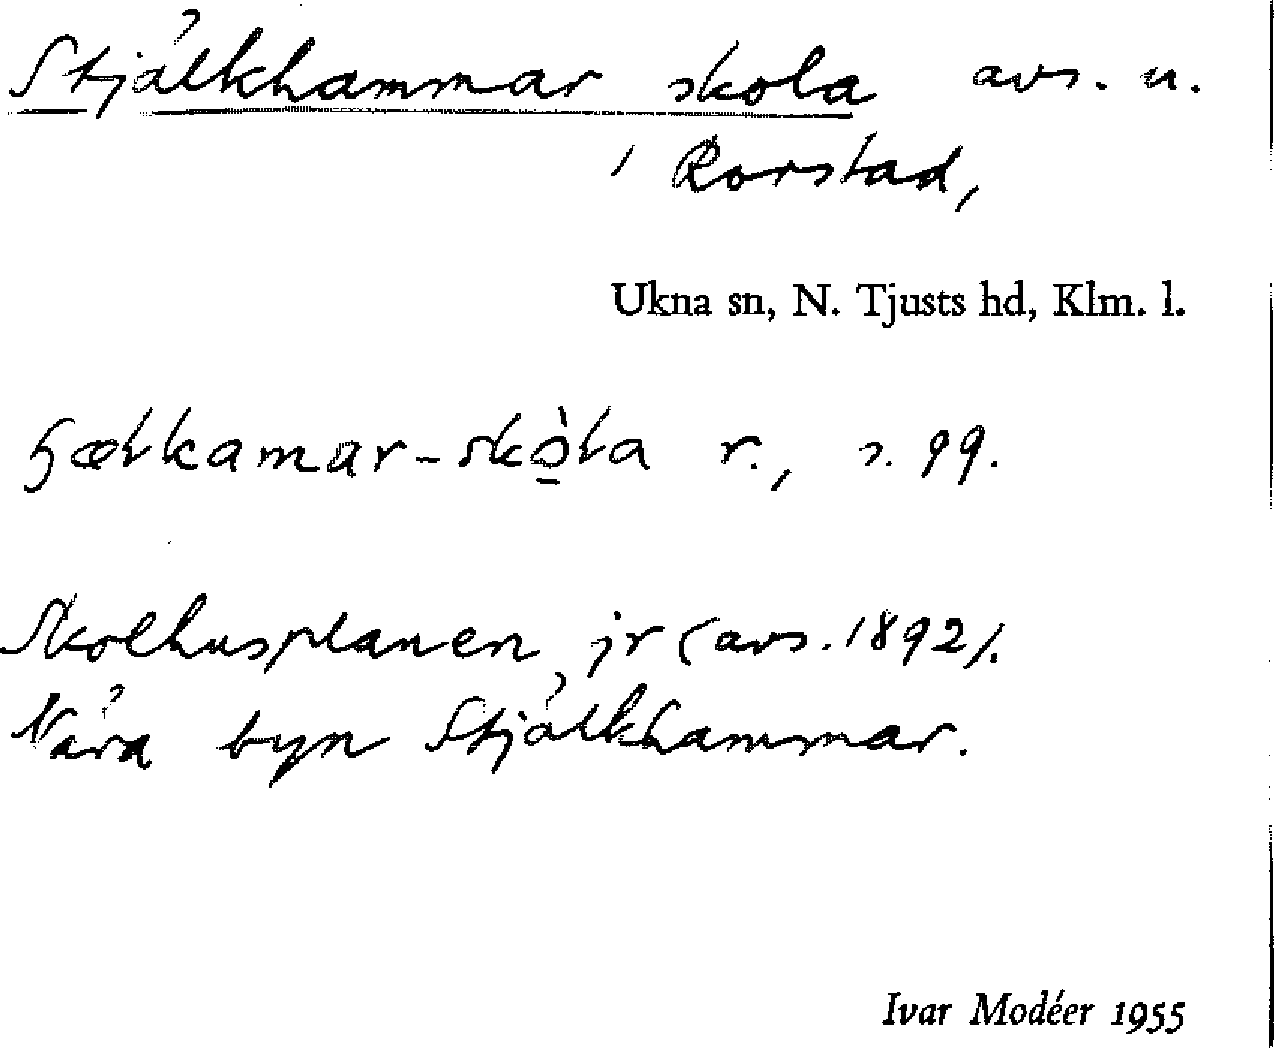 Stjälkhammar skola avs. u.
i Rorstad,
Ukna sn, N. Tjusts hd, Klm. l.
r., s. 99.
Skolhusplanen, jr (avs. 1892).
Nära byn Stjälkhammar.
Ivar Modéer 1955